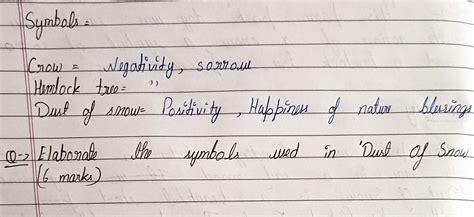 Symbols =
Crow = Negativity, sorrow
Hemlock tree= "
Dust of snow= Positivity, Happiness of nature blessings
Q→ Elaborate the symbols used in 'Dust Of Snow
(6 marks)